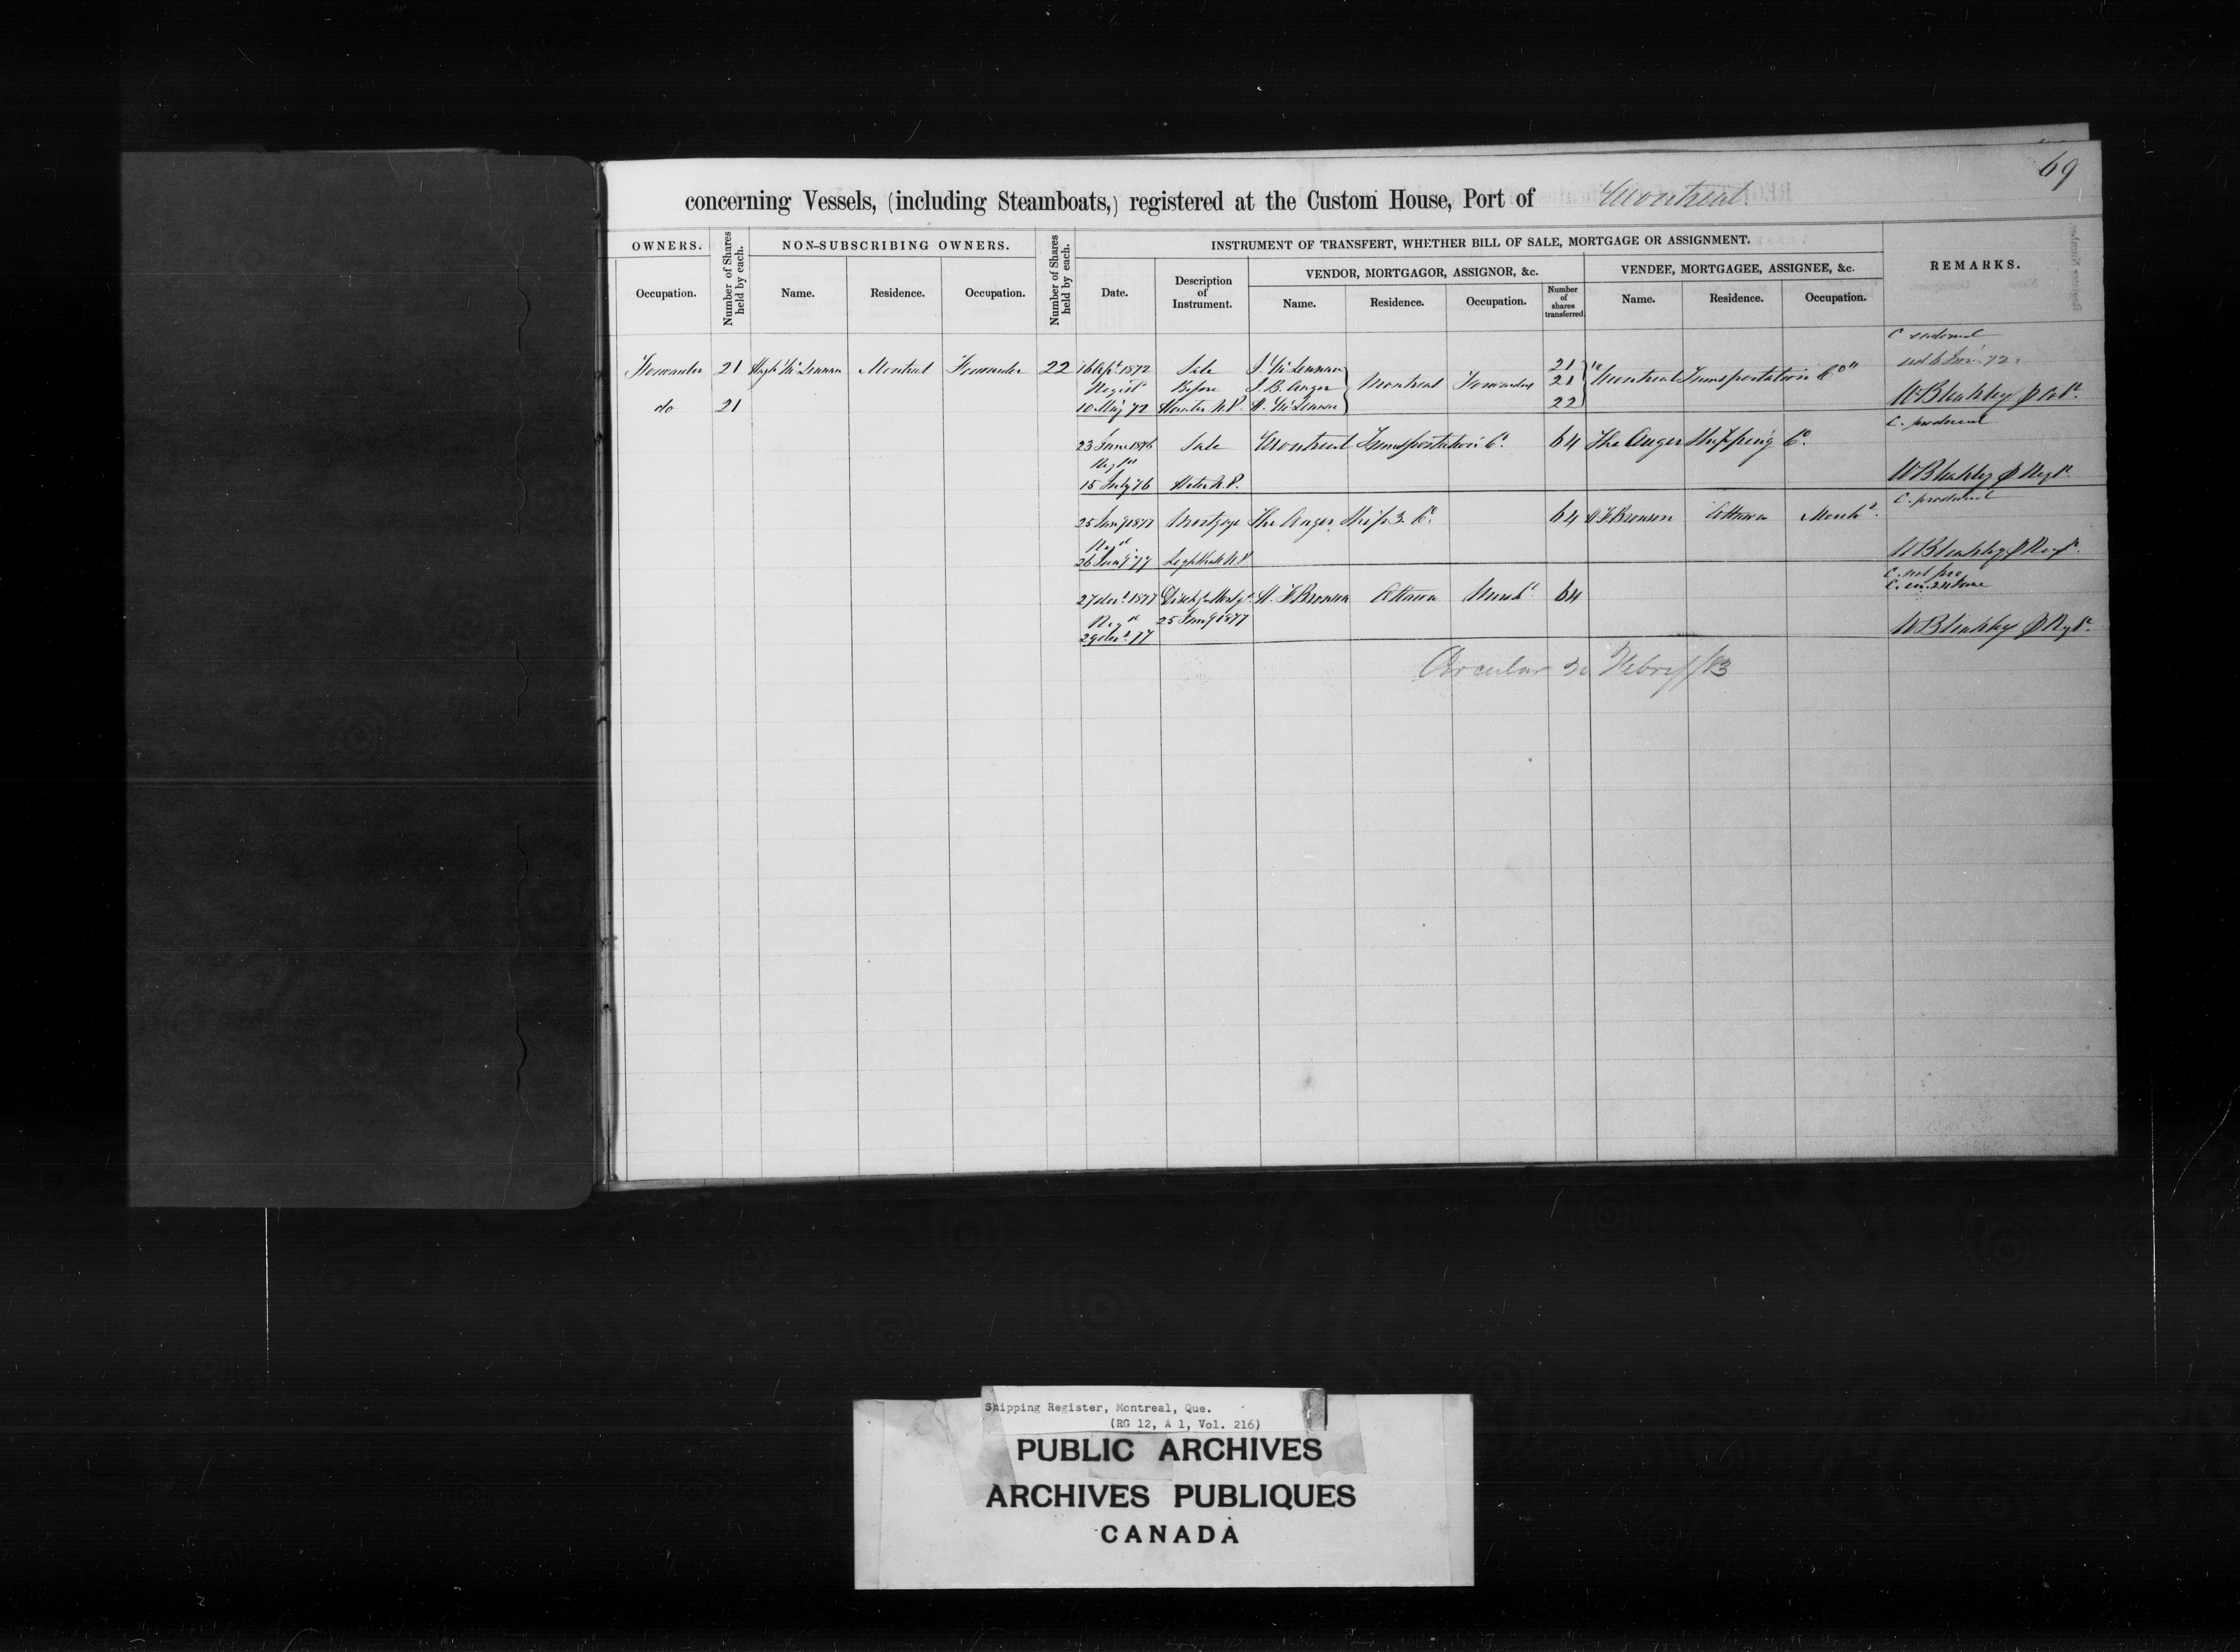 69
concerning Vessels, (including Steamboats,) registered at the Custom House, Port of Montreal.
OWNERS. Number of Shares held by each. NON-SUBSCRIBING OWNERS. Number of Shares held by each. INSTRUMENT OF TRANSFERT, WHETHER BILL OF SALE, MORTGAGE OR ASSIGNMENT. REMARKS.
VENDOR, MORTGAGOR, ASSIGNOR, &c. VENDEE, MORTGAGEE, ASSIGNEE, &c.
Occupation. Name. Residence. Occupation. Date. Description of Instrument. Name. Residence. Occupation. Number of shares transferred. Name. Residence. Occupation.
C endorsed
Forwarder 21 Hugh McLennan Montreal Forwarder 22 16 Apl 1872 Sale J. McLennan 21
Regist Before J. B. Auger Montreal Forwarders 21 "Montreal Transportation Co"
do 21 10 May 72 Hunter N.P. H. McLennan 22 WBleakley
C. produced
23 June 1876 Sale Montreal Transportation Co. 64 The Auger Shipping Co
Regd
15 July 76 N.P. WBleakley Regr
C. produced
25 Jany 1877 Mortgage The Auger Ship'g Co. 64 Bronson Ottawa Merch
Regd
26 Jany 77 Lighthall N.P. WBleakley Regr
C. not pro
27 decr 1877 Disch Mortg Bronson Ottawa Merch 64
Regd 25 Jany 1877
29 decr 77 WBleakley Regr
Circular Febry/83
Shipping Register, Montreal, Que.
(RG 12, A 1, Vol. 216)
PUBLIC ARCHIVES
ARCHIVES PUBLIQUES
CANADA